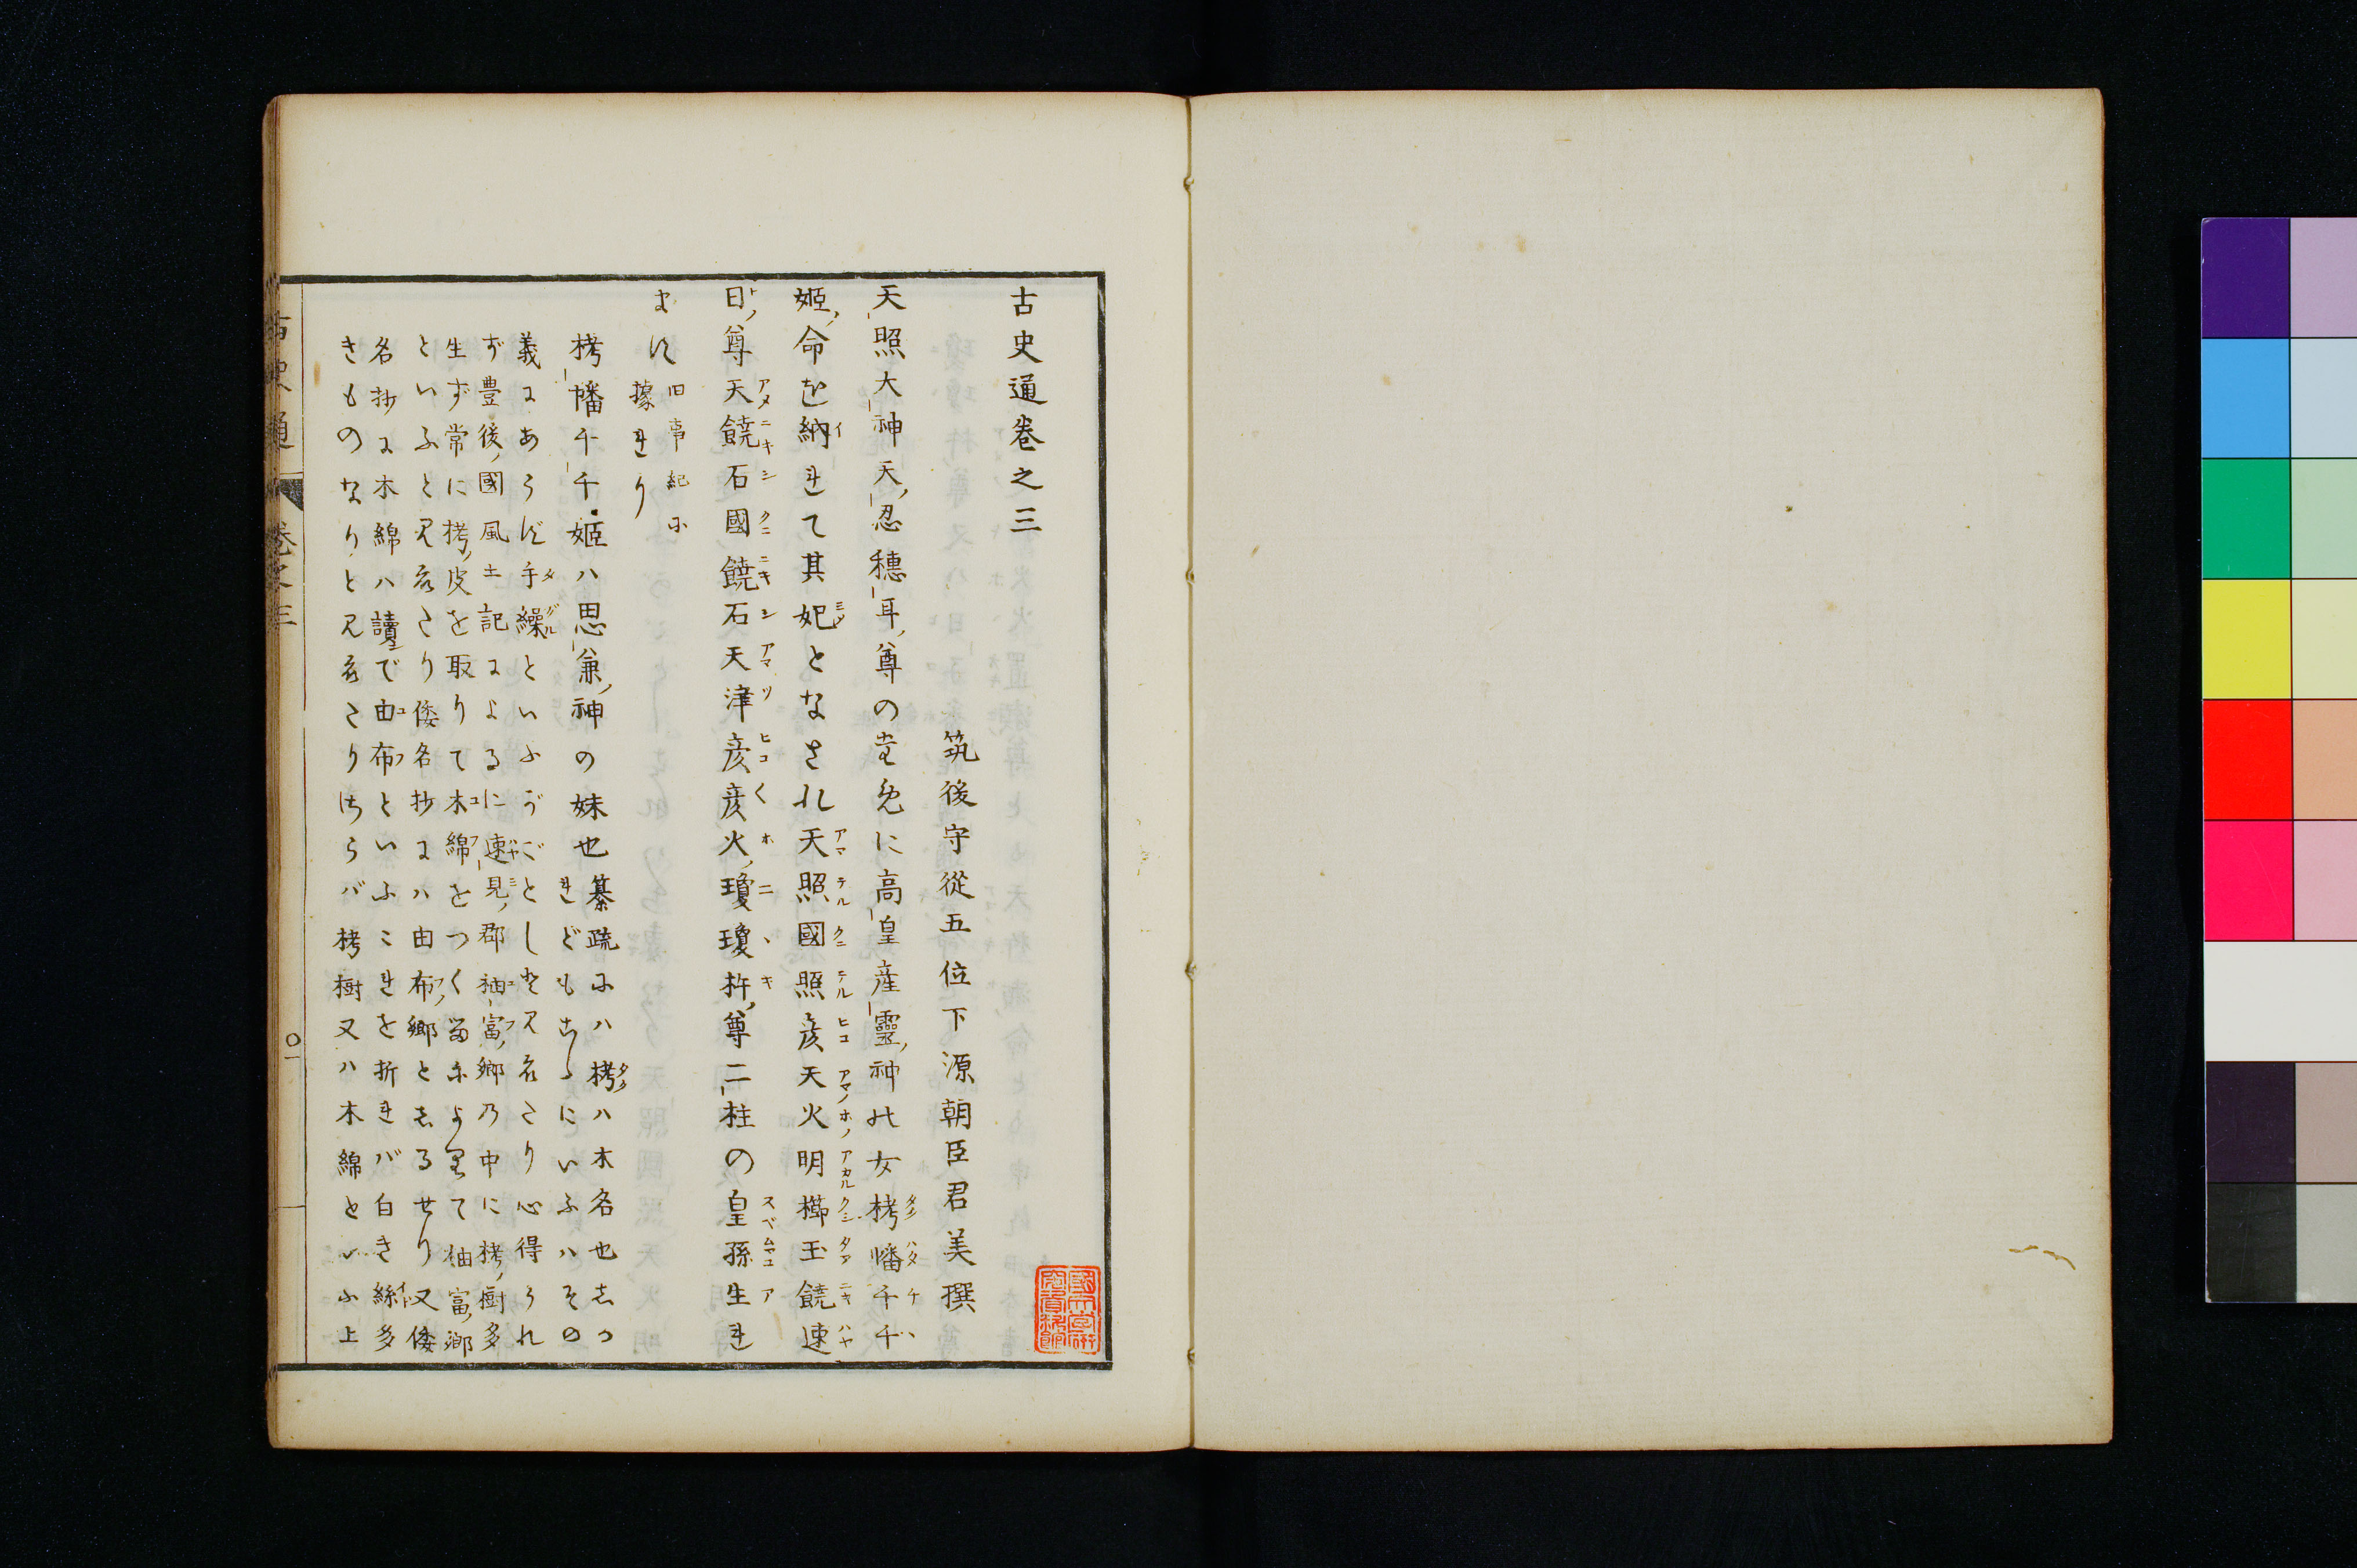 古史通卷之三
筑後守從五位下源朝臣君美撰
天照大神天忍穗耳尊のために高皇産靈神の女栲幡千千
姬命を納れて其妃となされ天照國照彦天火明櫛玉饒速
日尊天饒石國饒石天津彦彦火瓊瓊杵尊二柱の皇孫生れ
ます旧事紀に據れり
栲幡千千姬ハ思兼神の妹也纂疏にハ栲ハ木名也しつ
れどもこゝにいふハその
義にあらず手繰といふがごとしと見えたり心得られ
ず豊後國風土記によるに速見郡柚富鄉乃中に栲樹多
生ず常に栲皮を取りて木綿をつくる因て柚富鄉
といふと見えたり倭名抄にハ由布鄉としるせり又倭
名抄に木綿ハ讀で由布といふこれを折れバ白き絲多
きものなりと見えたりさらバ栲樹又ハ木綿といふ上
古史通 卷之三 〇一